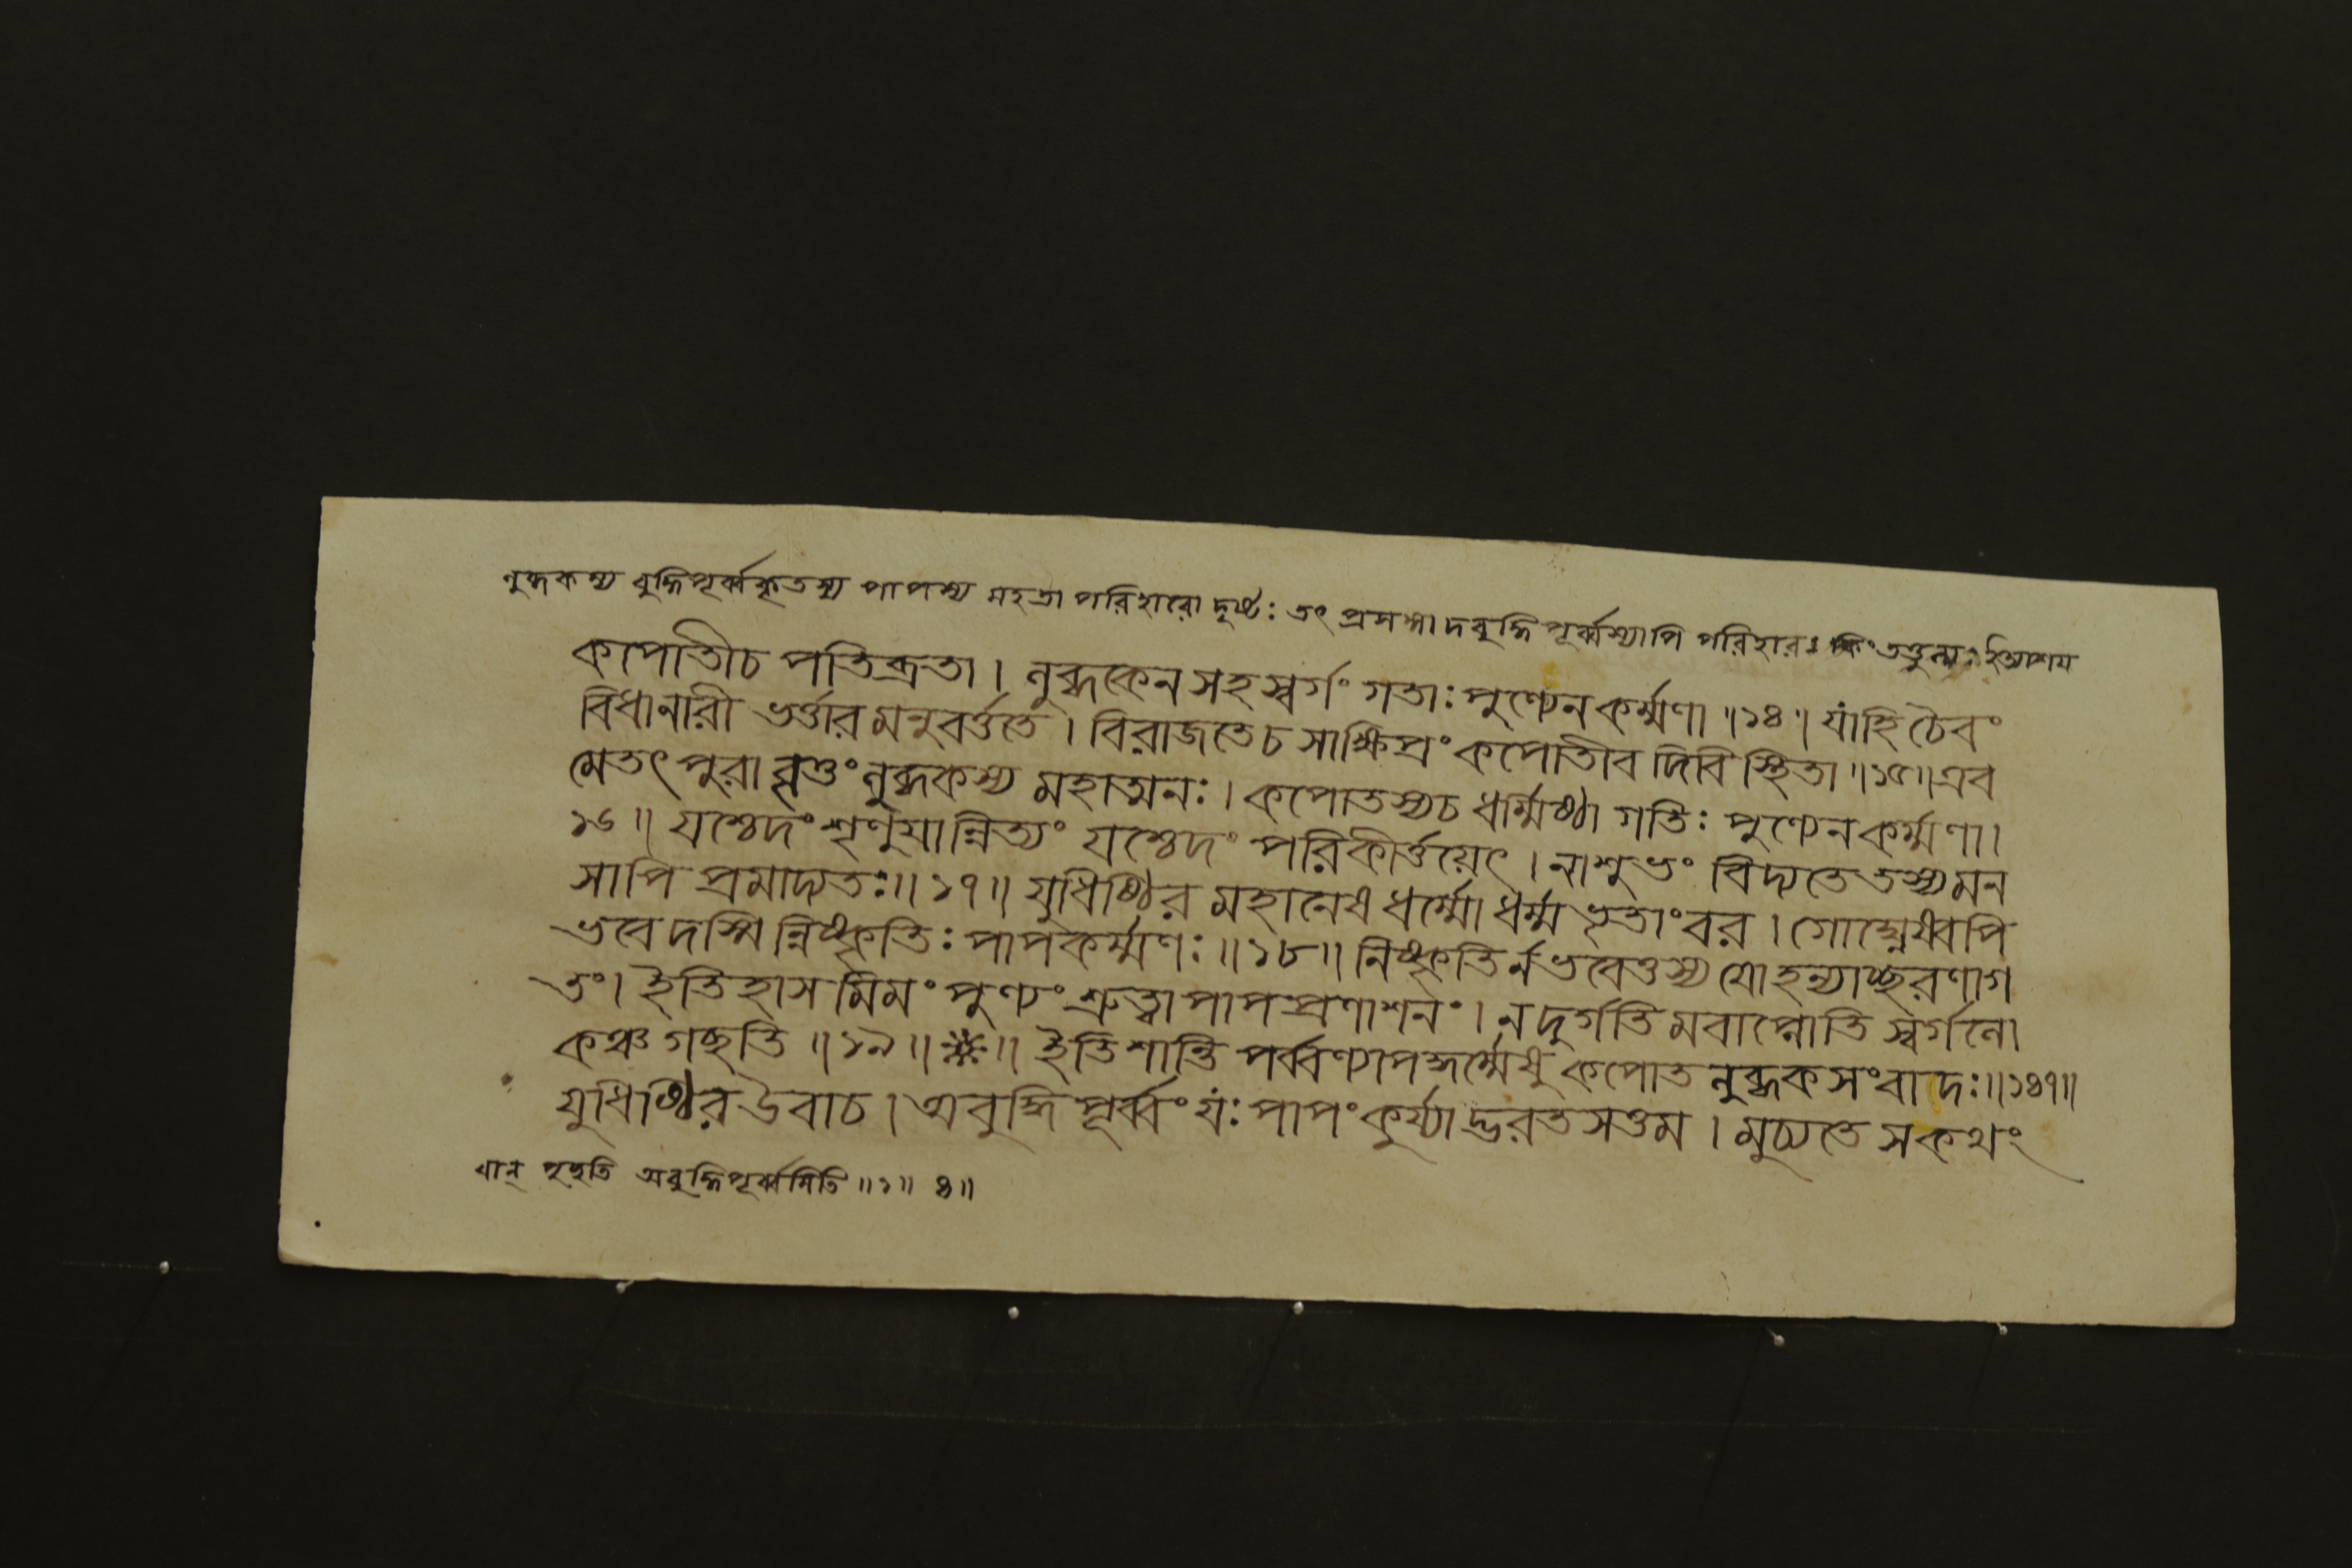 লুব্ধকস্য বুদ্ধিপূর্ব্বকৃতস্য পাপস্য মহতা পরিহারো দৃষ্টঃ তৎ প্রসঙ্গাদবুদ্ধিপূর্ব্বস্যাপি পরিহারঃ
কপোতীচ পতিব্রতা। লুব্ধকেন সহ স্বর্গং গতাঃ পুণ্যেন কর্ম্মণা॥১৪॥ যাহি চৈবং
বিধানারী ভর্ত্তারমনুবর্ত্ততে। বিরাজতেচ সাক্ষিপ্রং কপোতীব দিবি স্থিতা॥১৫॥এব
মেতৎ পুরা বৃত্তং লুব্ধকস্য মহাত্মনঃ। কপোতস্যচ ধর্ম্মিষ্ঠা গতিঃ পুণ্যেন কর্ম্মণা।
১৬॥ যশ্চেদং শৃণুয়ান্নিত্যং যশ্চেদং পরিকীর্ত্তয়েৎ। নাশুভং বিদ্যতে তস্য মন
সাপি প্রমাদ্যতঃ॥১৭॥ যুধিষ্ঠির মহানেষ ধর্ম্মো ধর্ম্মভৃতাংবর। গোঘ্নেষ্বপি
ভবেদস্মিন্নিষ্কৃতিঃ পাপকর্ম্মণঃ॥১৮॥ নিষ্কৃতির্নভবেত্তস্য যোহন্যাচ্ছরণাগ
তং। ইতিহাসমিমং পুণ্যং শ্রুত্বা পাপপ্রণাশনং। ন দুর্গতিমবাপ্নোতি স্বর্গলো
কঞ্চ গচ্ছতি॥১৯॥※॥ ইতি শান্তি পর্ব্বণ্যাপদ্ধর্ম্মেষু কপোত লুব্ধকসংবাদঃ॥১৪৭॥
যুধিষ্ঠির উবাচ। অবুদ্ধি পূর্ব্বং যঃ পাপং কুর্য্যাদ্ভরতসত্তম। মুচ্যতে সকথং
পৃচ্ছতি অবুদ্ধিপূর্ব্বমিতি॥১॥ ৪॥